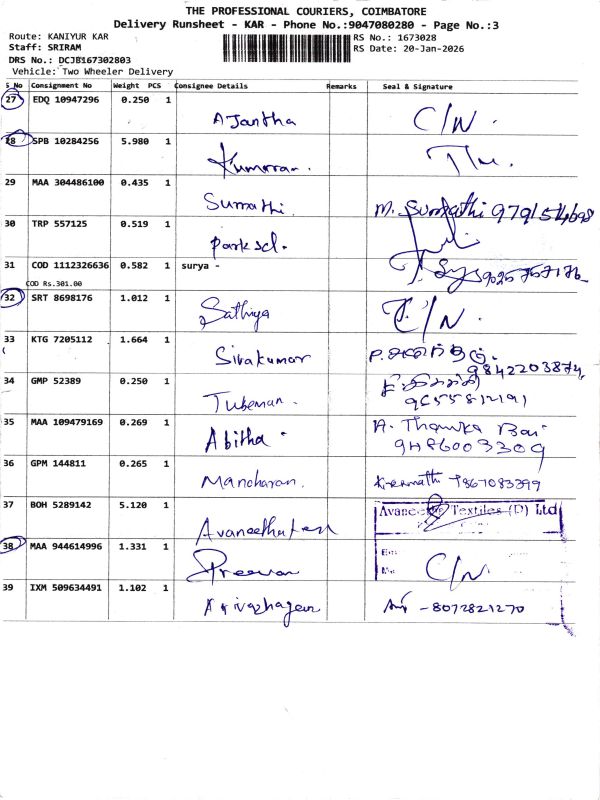 THE PROFESSIONAL COURIERS, COIMBATORE
Delivery Runsheet - KAR - Phone No.:9047080280 - Page No.:3
Route: KANIYUR KAR
RS No.: 1673028
Staff: SRIRAM
RS Date: 20-Jan-2026
DRS No.: DCJB167302803
Vehicle: Two Wheeler Delivery
S No Consignment No Weight PCS Consignee Details Remarks Seal & Signature
27 EDQ 10947296 0.250 1 AJantha C/N.
28 SPB 10284256 5.980 1
29 MAA 304486100 0.435 1 Sumathi. M. Sumathi
30 TRP 557125 0.519 1 park scl.
31 COD 1112326636 0.582 1 surya - 9025757176
COD Rs.301.00
32 SRT 8698176 1.012 1 Sathiya C/N.
33 KTG 7205112 1.664 1 Sivakumar 9842203874,
34 GMP 52389 0.250 1 Tubeman. 9655812191
35 MAA 109479169 0.269 1 Abitha. A. Thanka Bai
9486003309
36 GPM 144811 0.265 1 Manoharan. 9867083399
37 BOH 5289142 5.120 1 Textiles (P) Ltd
38 MAA 944614996 1.331 1 C/N.
39 IXM 509634491 1.102 1 Arivazhagan - 8072821270